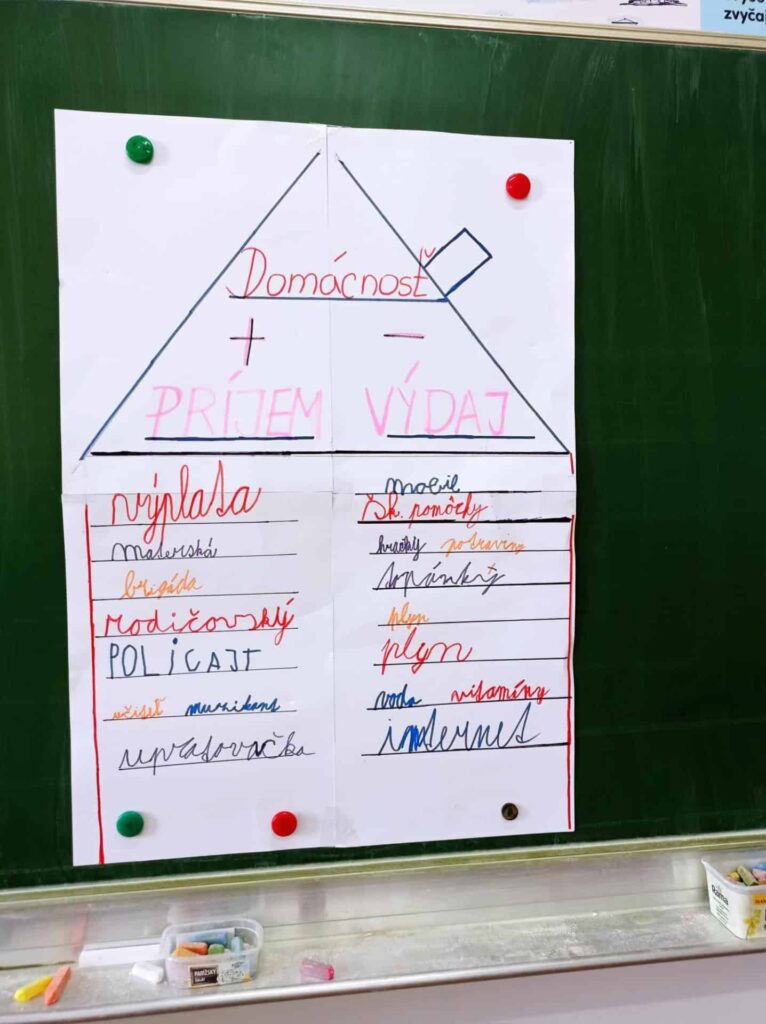 zvyčaj
Domácnosť
+ -
PRÍJEM VÝDAJ
výplata
materská
brigáda
rodičovský
POLICAJT
učiteľ muzikant
upratovačka
mobil
šk. pomôcky
hračky potraviny
topánky
plyn
plyn
voda vitamíny
internet
PARÍŽSKY
ŠALÁT
Rama